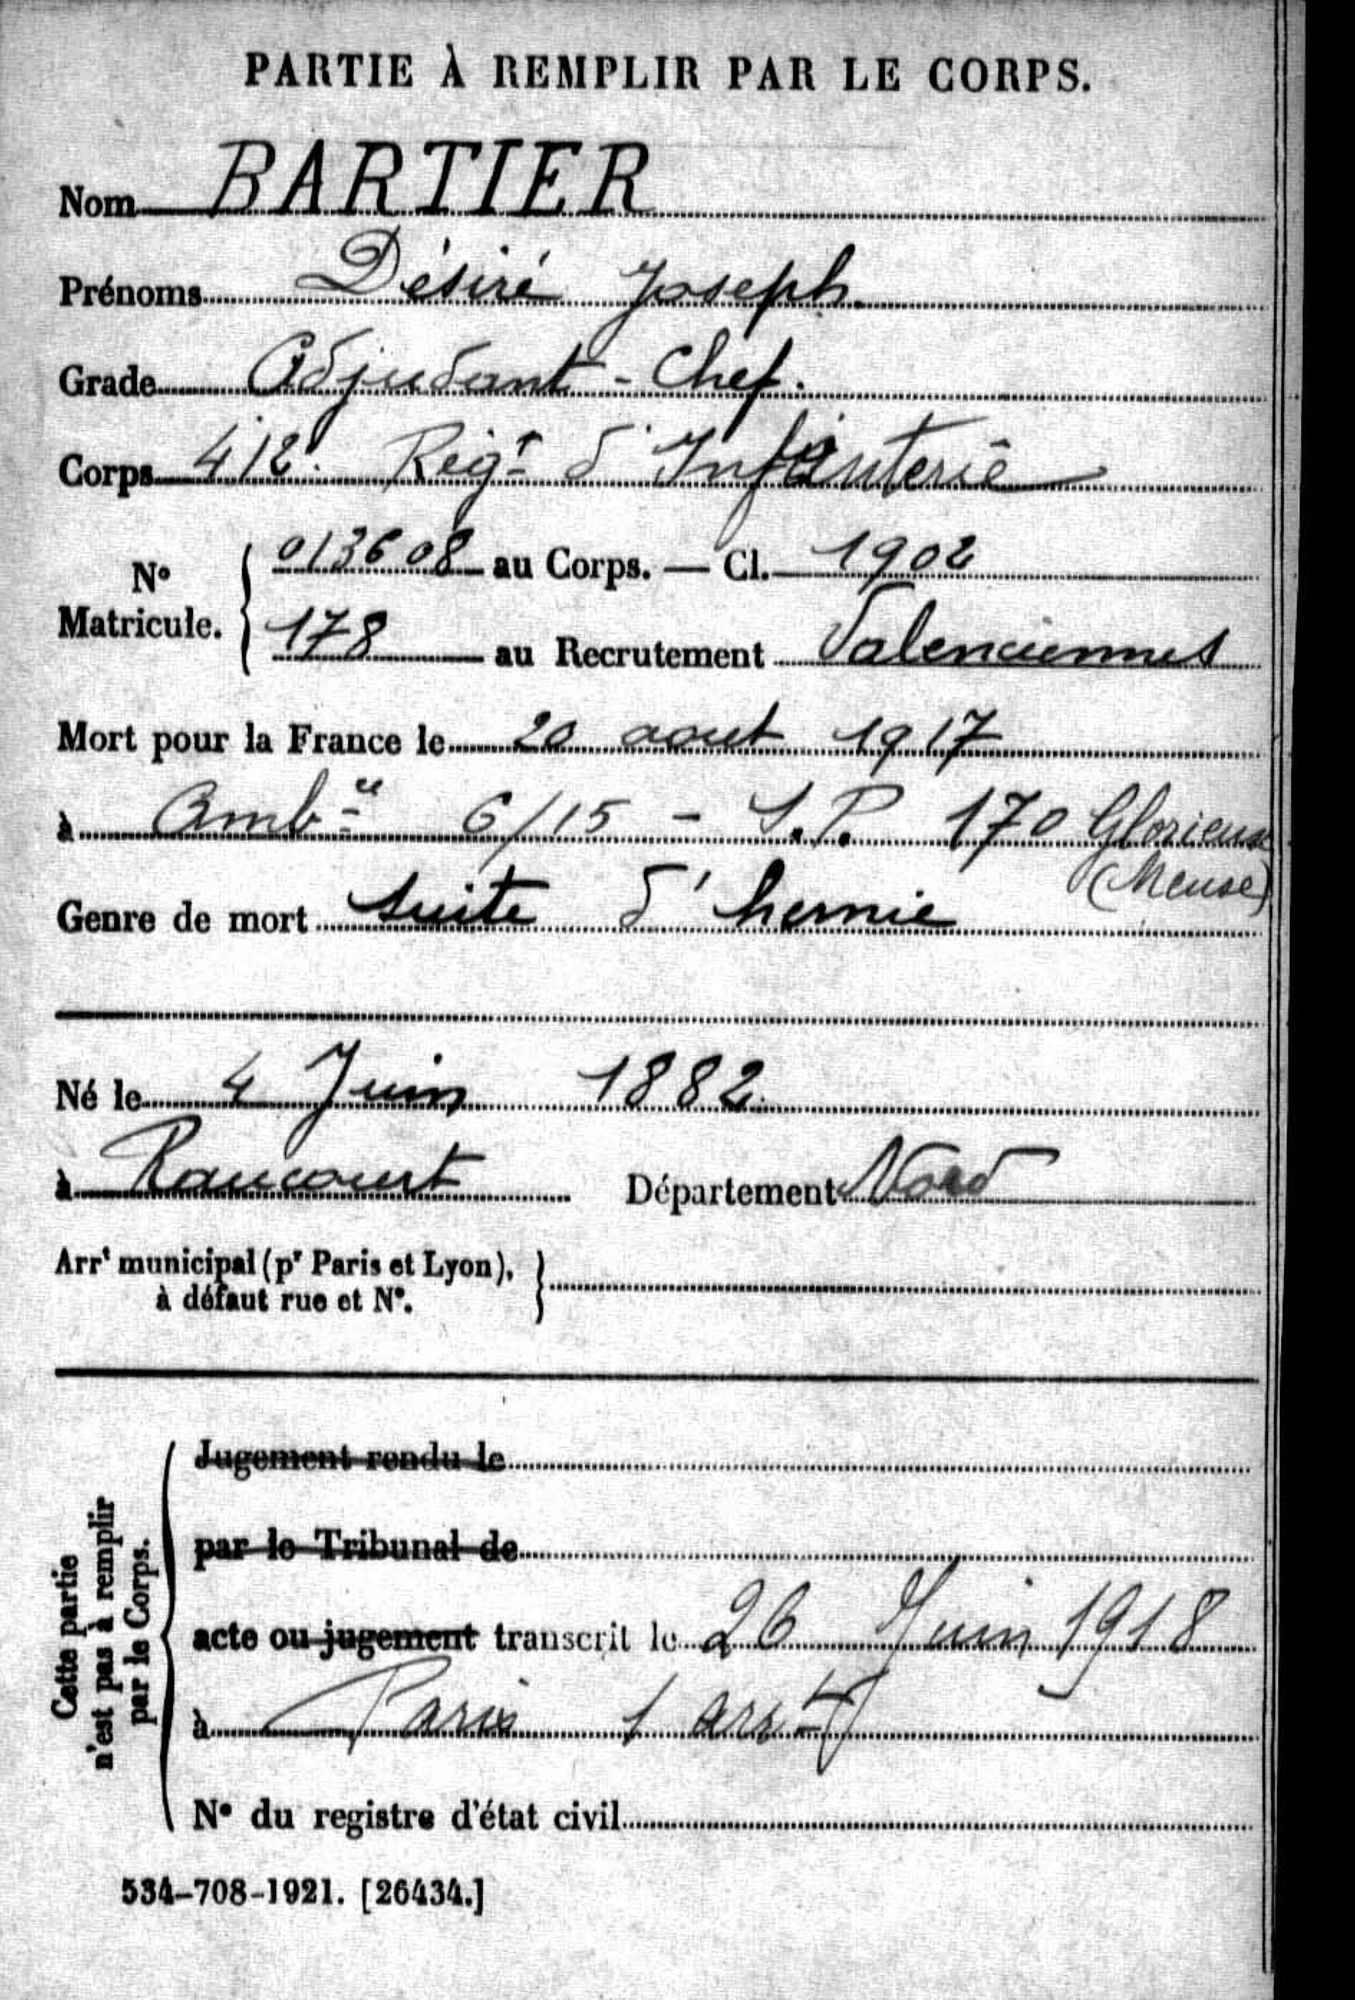 PARTIE À REMPLIR PAR LE CORPS.
Nom BARTIER
Prénoms Désiré Joseph
Grade Adjudant-Chef.
Corps 412e Régt d'Infanterie
N° Matricule. { 013608 au Corps. — Cl. 1902
178 au Recrutement Valenciennes
Mort pour la France le 20 aout 1917
à Ambce 6/15 - S.P. 170 Glorieux
(Meuse)
Genre de mort suite d'hernie
Né le 4 Juin 1882
à Raucourt Département Nord
Arrt municipal (pr Paris et Lyon),
à défaut rue et N°.
Cette partie
n'est pas à remplir
par le Corps.
Jugement rendu le
par le Tribunal de
acte ou jugement transcrit le 26 Juin 1918
à Paris 1 arrt
N° du registre d'état civil
534-708-1921. [26434.]